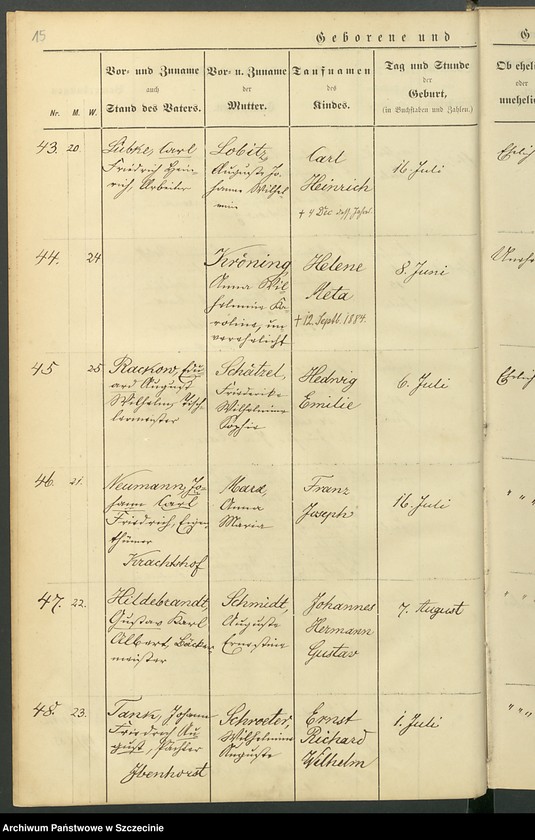 15
Geborene und
G
Nr. M. W.
Vor- und Zuname
auch
Stand des Vaters.
Vor- u. Zuname
der
Mutter.
Taufnamen
des
Kindes.
Tag und Stunde
der
Geburt,
(in Buchstaben und Zahlen.)
Ob ehel
oder
unehelich
43. 20.
Lübke, Carl
Friedrich Hein-
rich, Arbeiter
Lobitz,
Auguste Jo-
hanne Wilhel-
mine
Carl
Heinrich
† 4 Dec
16 Juli
Ehelich
44. 24
Kröning,
Anna Wil-
helmine Ka-
roline, un-
verehelicht
Helene
Meta
† 12. Septb. 1884.
8. Juni
45 25
Rackow, Edu-
ard August
Wilhelm, Tisch-
lermeister
Schätzel,
Friederike
Wilhelmine
Sophie
Hedwig
Emilie
6. Juli
Ehelich
46. 21.
Neumann, Jo-
hann Carl
Friedrich, Eigen-
thümer
Krachtshof
Marx,
Anna
Maria
Franz
Joseph
16. Juli
" "
47. 22.
Hildebrandt,
Gustav Karl
Albert, Bäcker-
meister
Schmidt,
Auguste
Ernestine
Johannes
Hermann
Gustav
7. August
" "
48. 23.
Tank, Johann
Friedrich Au-
gust, Pächter
Ibenhorst
Schroeter,
Wilhelmine
Auguste
Ernst
Richard
Wilhelm
1. Juli
" "
Archiwum Państwowe w Szczecinie